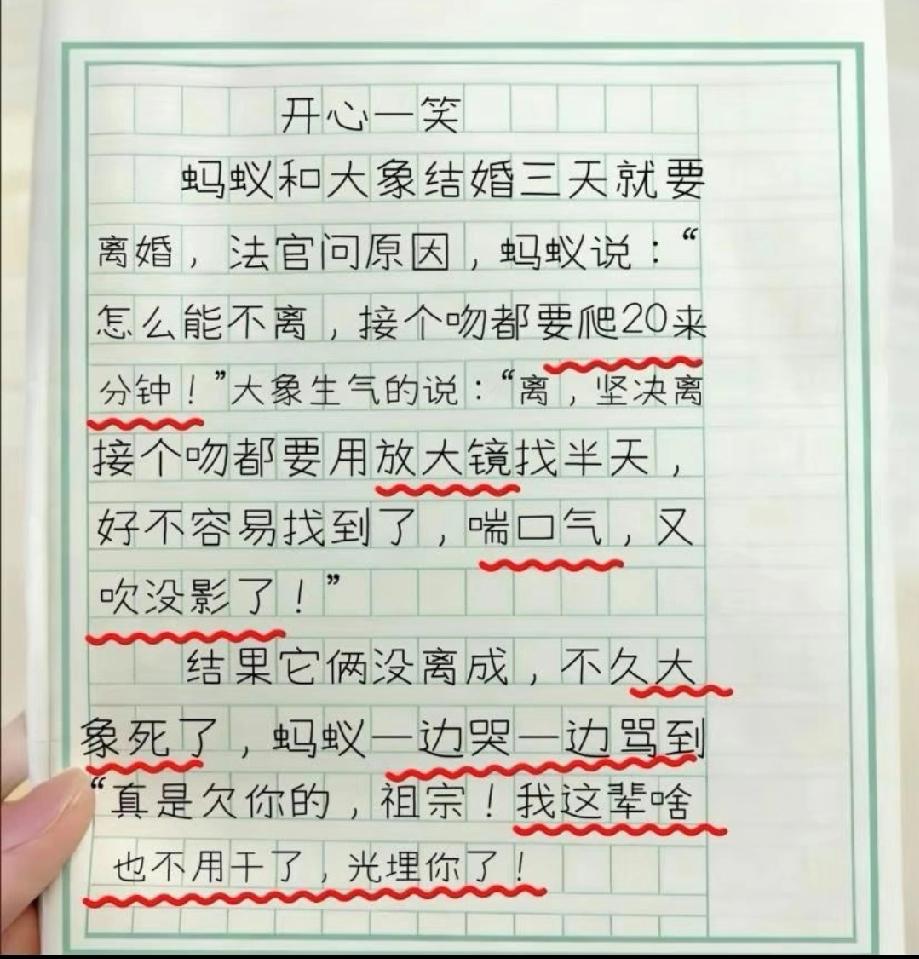 开心一笑
蚂蚁和大象结婚三天就要
离婚，法官问原因，蚂蚁说：“
怎么能不离，接个吻都要爬20来
分钟！”大象生气的说：“离，坚决离
接个吻都要用放大镜找半天，
好不容易找到了，喘口气，又
吹没影了！”
结果它俩没离成，不久大
象死了，蚂蚁一边哭一边骂到
“真是欠你的，祖宗！我这辈啥
也不用干了，光埋你了！